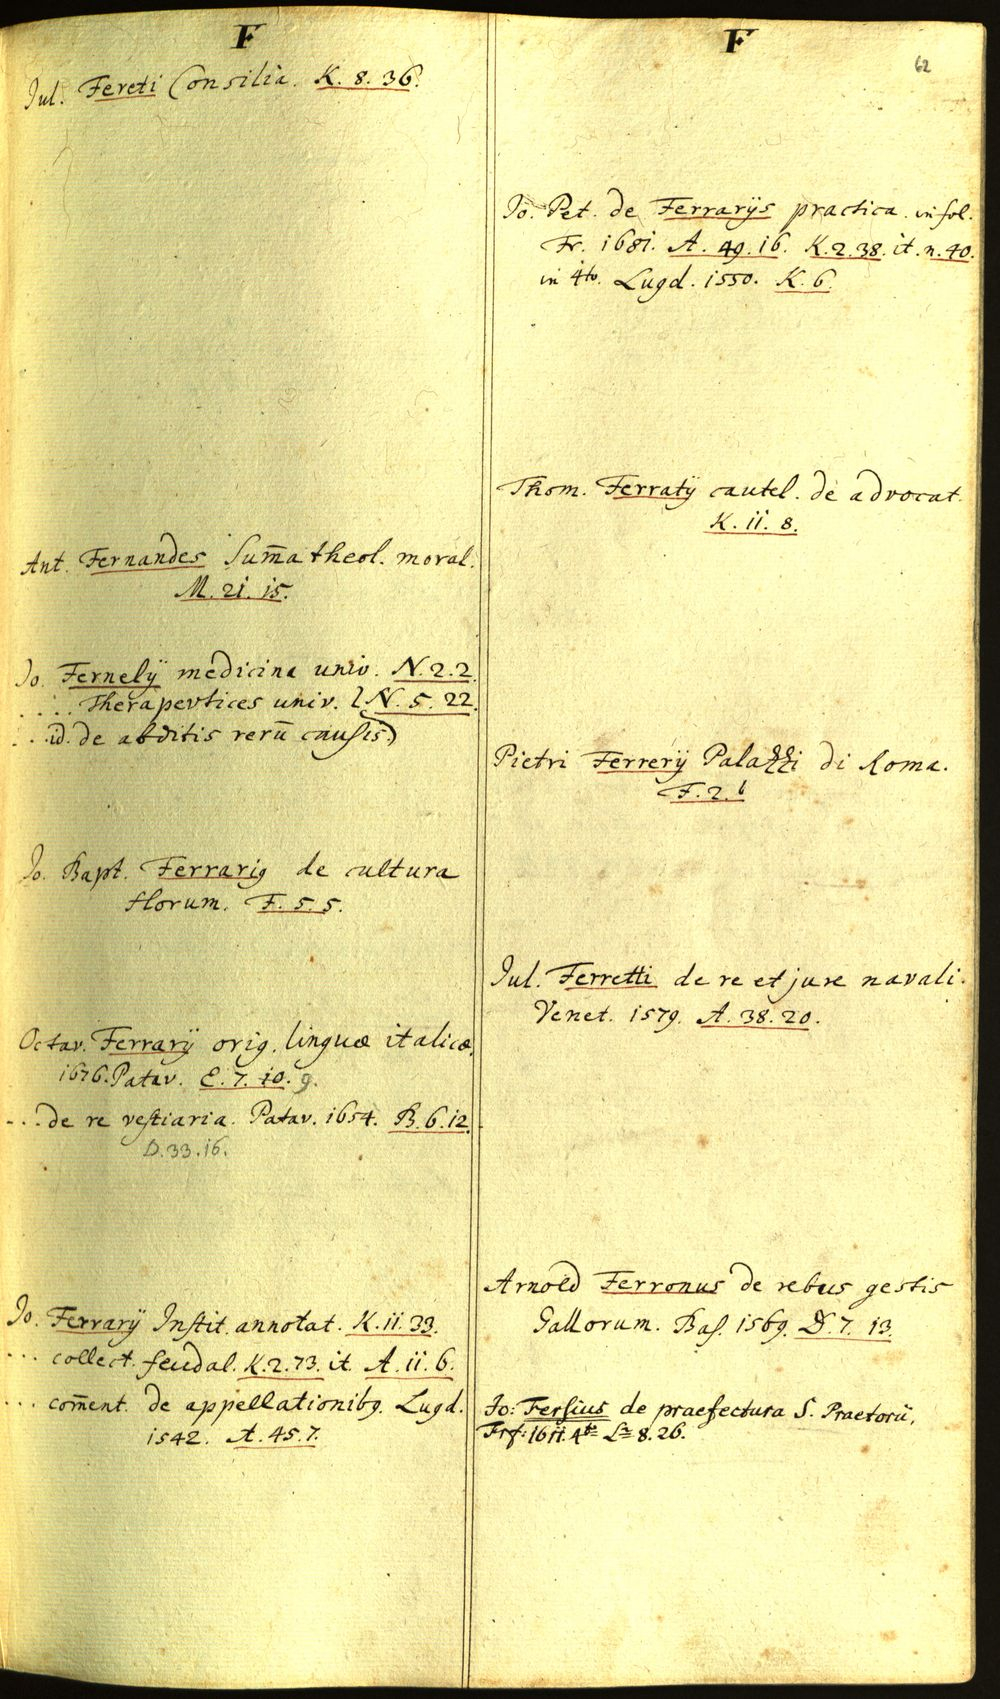 F
Jul. Fereti Consilia. K. 8. 36.
Ant. Fernandes Sum̄a theol. moral.
M. 21. 15.
Jo. Fernelÿ medicina univ. N. 2. 2.
. . . Therapevtices univ. N. 5. 22.
. . . id. de abditis rerū causis)
Jo. Bapt. Ferrarig de cultura
florum. F. 5. 5.
Octav. Ferrarÿ orig. linguæ italicæ,
1676. Patav. E. 7. 10. 9.
. . . de re vestiaria. Patav. 1654. B. 6. 12.
D. 33. 16.
Jo. Ferrarÿ Instit. annotat. K. ii. 33.
. . . collect. feudal. K. 2. 73. it. A. ii. 6.
. . . com̄ent. de appellationibg. Lugd.
1542. A. 45. 7.
F
62
Jo. Pet. de Ferrarÿs practica. in fol.
Fr. 1681. A. 49. 16. K. 2. 38. it. n. 40.
in 4to. Lugd. 1550. K. 6.
Thom. Ferratÿ cautel. de advocat.
K. ii. 8.
Pietri Ferrerÿ Palazzi di Roma.
F. 2. 6
Jul. Ferretti de re et jure navali.
Venet. 1579. A. 38. 20.
Arnold Ferronus de rebus gestis
Gallorum. Bas. 1569. D. 7. 13.
Jo: Fersius de praefectura S. Praetorii,
Frf: 1611. 4to La 8. 26.